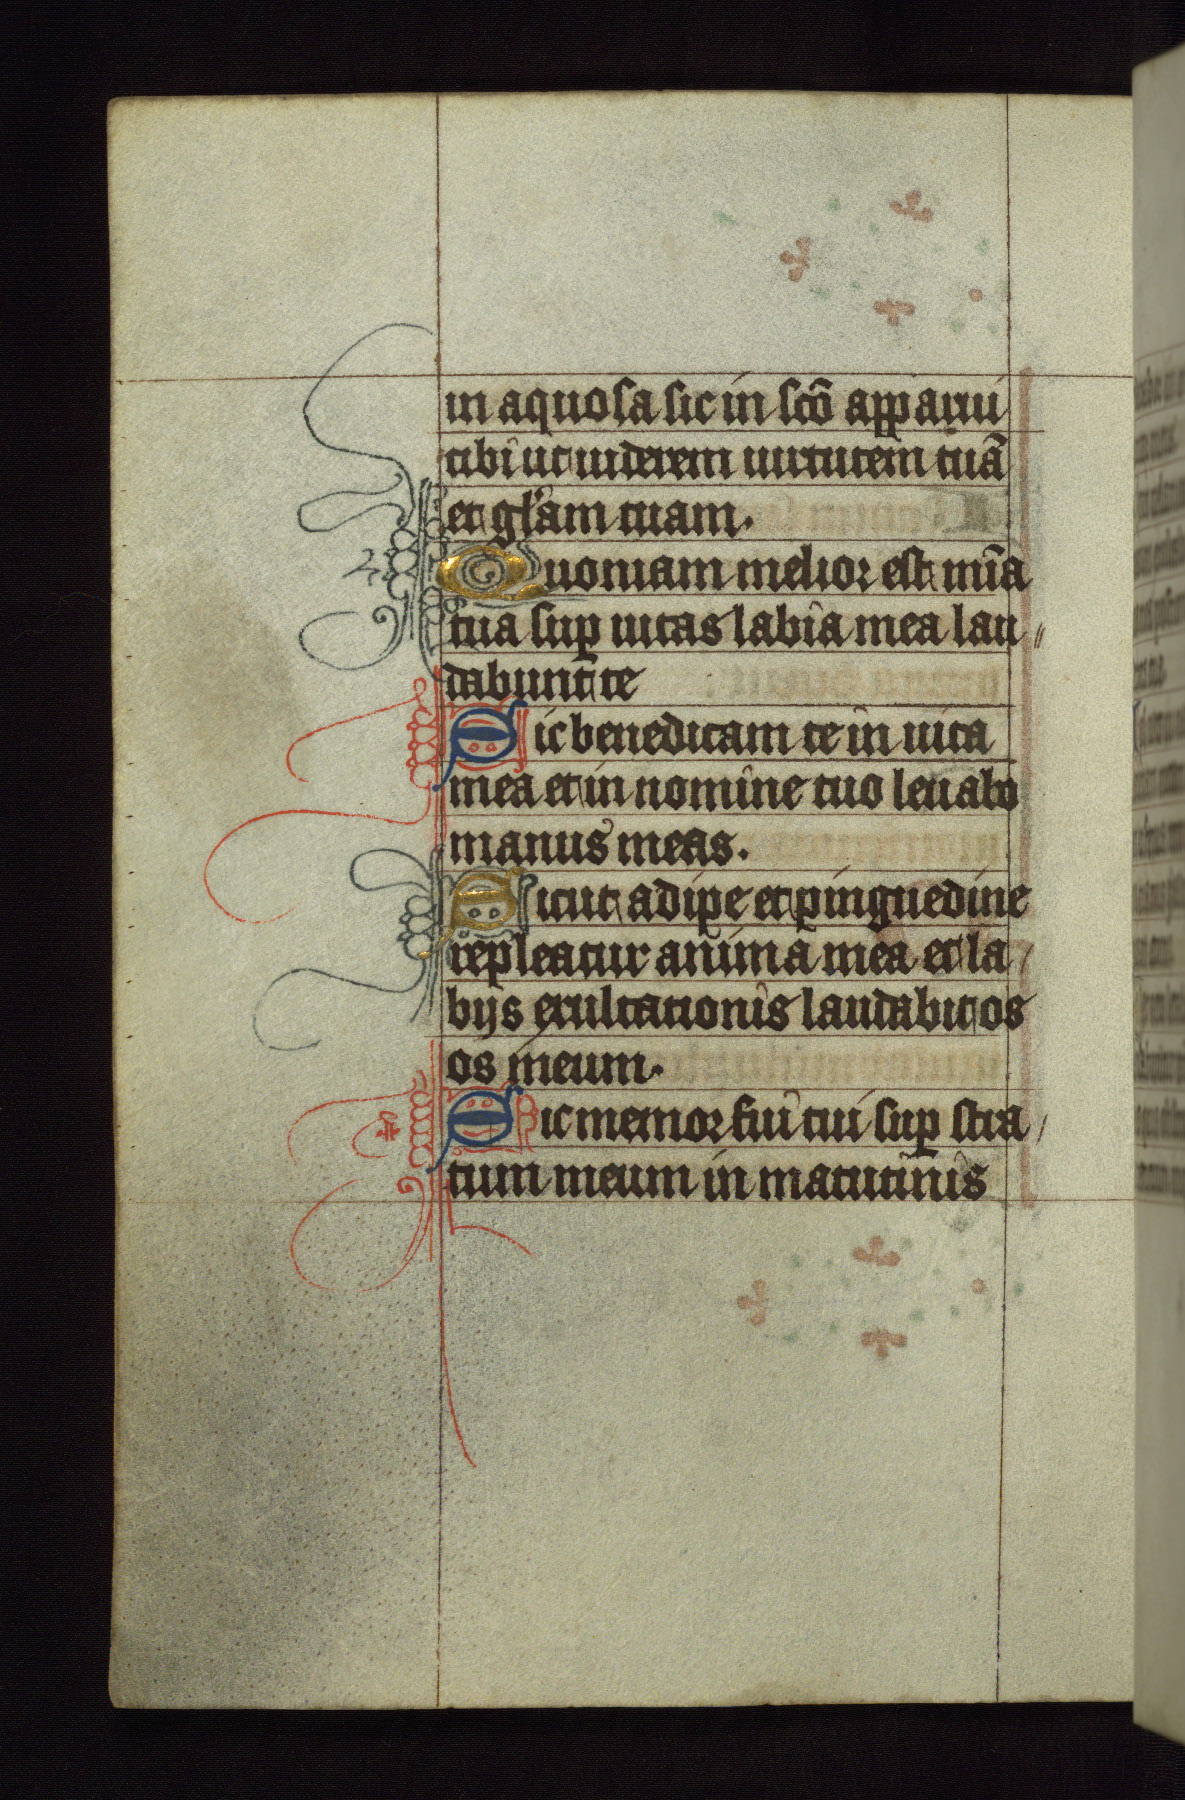 in aquosa sic in scō apparui
tibi ut uiderem uirtutem tuā
et gl'am tuam.
Quoniam melior est mīa
tua sup uitas labia mea lau
dabunt te
Sic benedicam te in uita
mea et in nomine tuo leuabo
manus meas.
Sicut adipe et pinguedine
repleatur anima mea et la
bijs exultationis laudabit os
os meum.
Sic memor fui tui sup stra
tum meum in matutinis